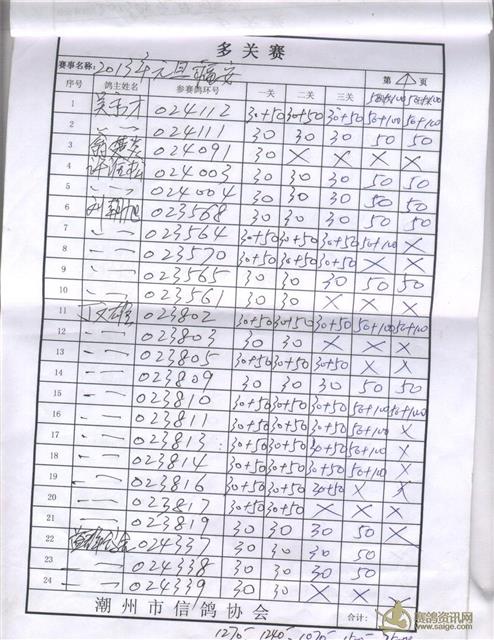 多关赛
赛事名称: 2013年元旦 第 1 页
序号 鸽主姓名 参赛鸽环号 一关 二关 三关 50+100 50+100
1 024112 30+50 30+50 30+50 50+100 50+100
2 〃 024111 30 30 30 50 50
3 024091 30 × × × ×
4 024003 30 30 30 50 50
5 〃 024004 30 30 30 50 50
6 023568 30 30 30 50 50
7 〃 023564 30+50 30+50 30+50 50+100 ×
8 〃 023570 30+50 30+50 30+50 50+100 ×
9 〃 023565 30 30 30 50 50
10 〃 023561 30 30 × × ×
11 023802 30+50 30+50 30+50 50+100 50+100
12 〃 023803 30 30 × × ×
13 〃 023805 30+50 30+50 30+50 × ×
14 〃 023809 30 30 30 50 50
15 〃 023810 30+50 30+50 30+50 50+100 50+100
16 〃 023811 30+50 30+50 30+50 50+100 ×
17 〃 023813 30+50 30+50 30+50 50+100 ×
18 〃 023814 30+50 30+50 30+50 50+100 ×
19 〃 023816 30+50 30+50 30+50 × ×
20 〃 023817 30+50 30+50 × × ×
21 〃 023819 30 30 30 50 ×
22 024337 30 30 30 50 ×
23 〃 024338 30 30 30 50
24 〃 024339 30 × × × ×
潮州市信鸽协会 合计:
赛鸽资讯网
www.saige.com
1270 1240